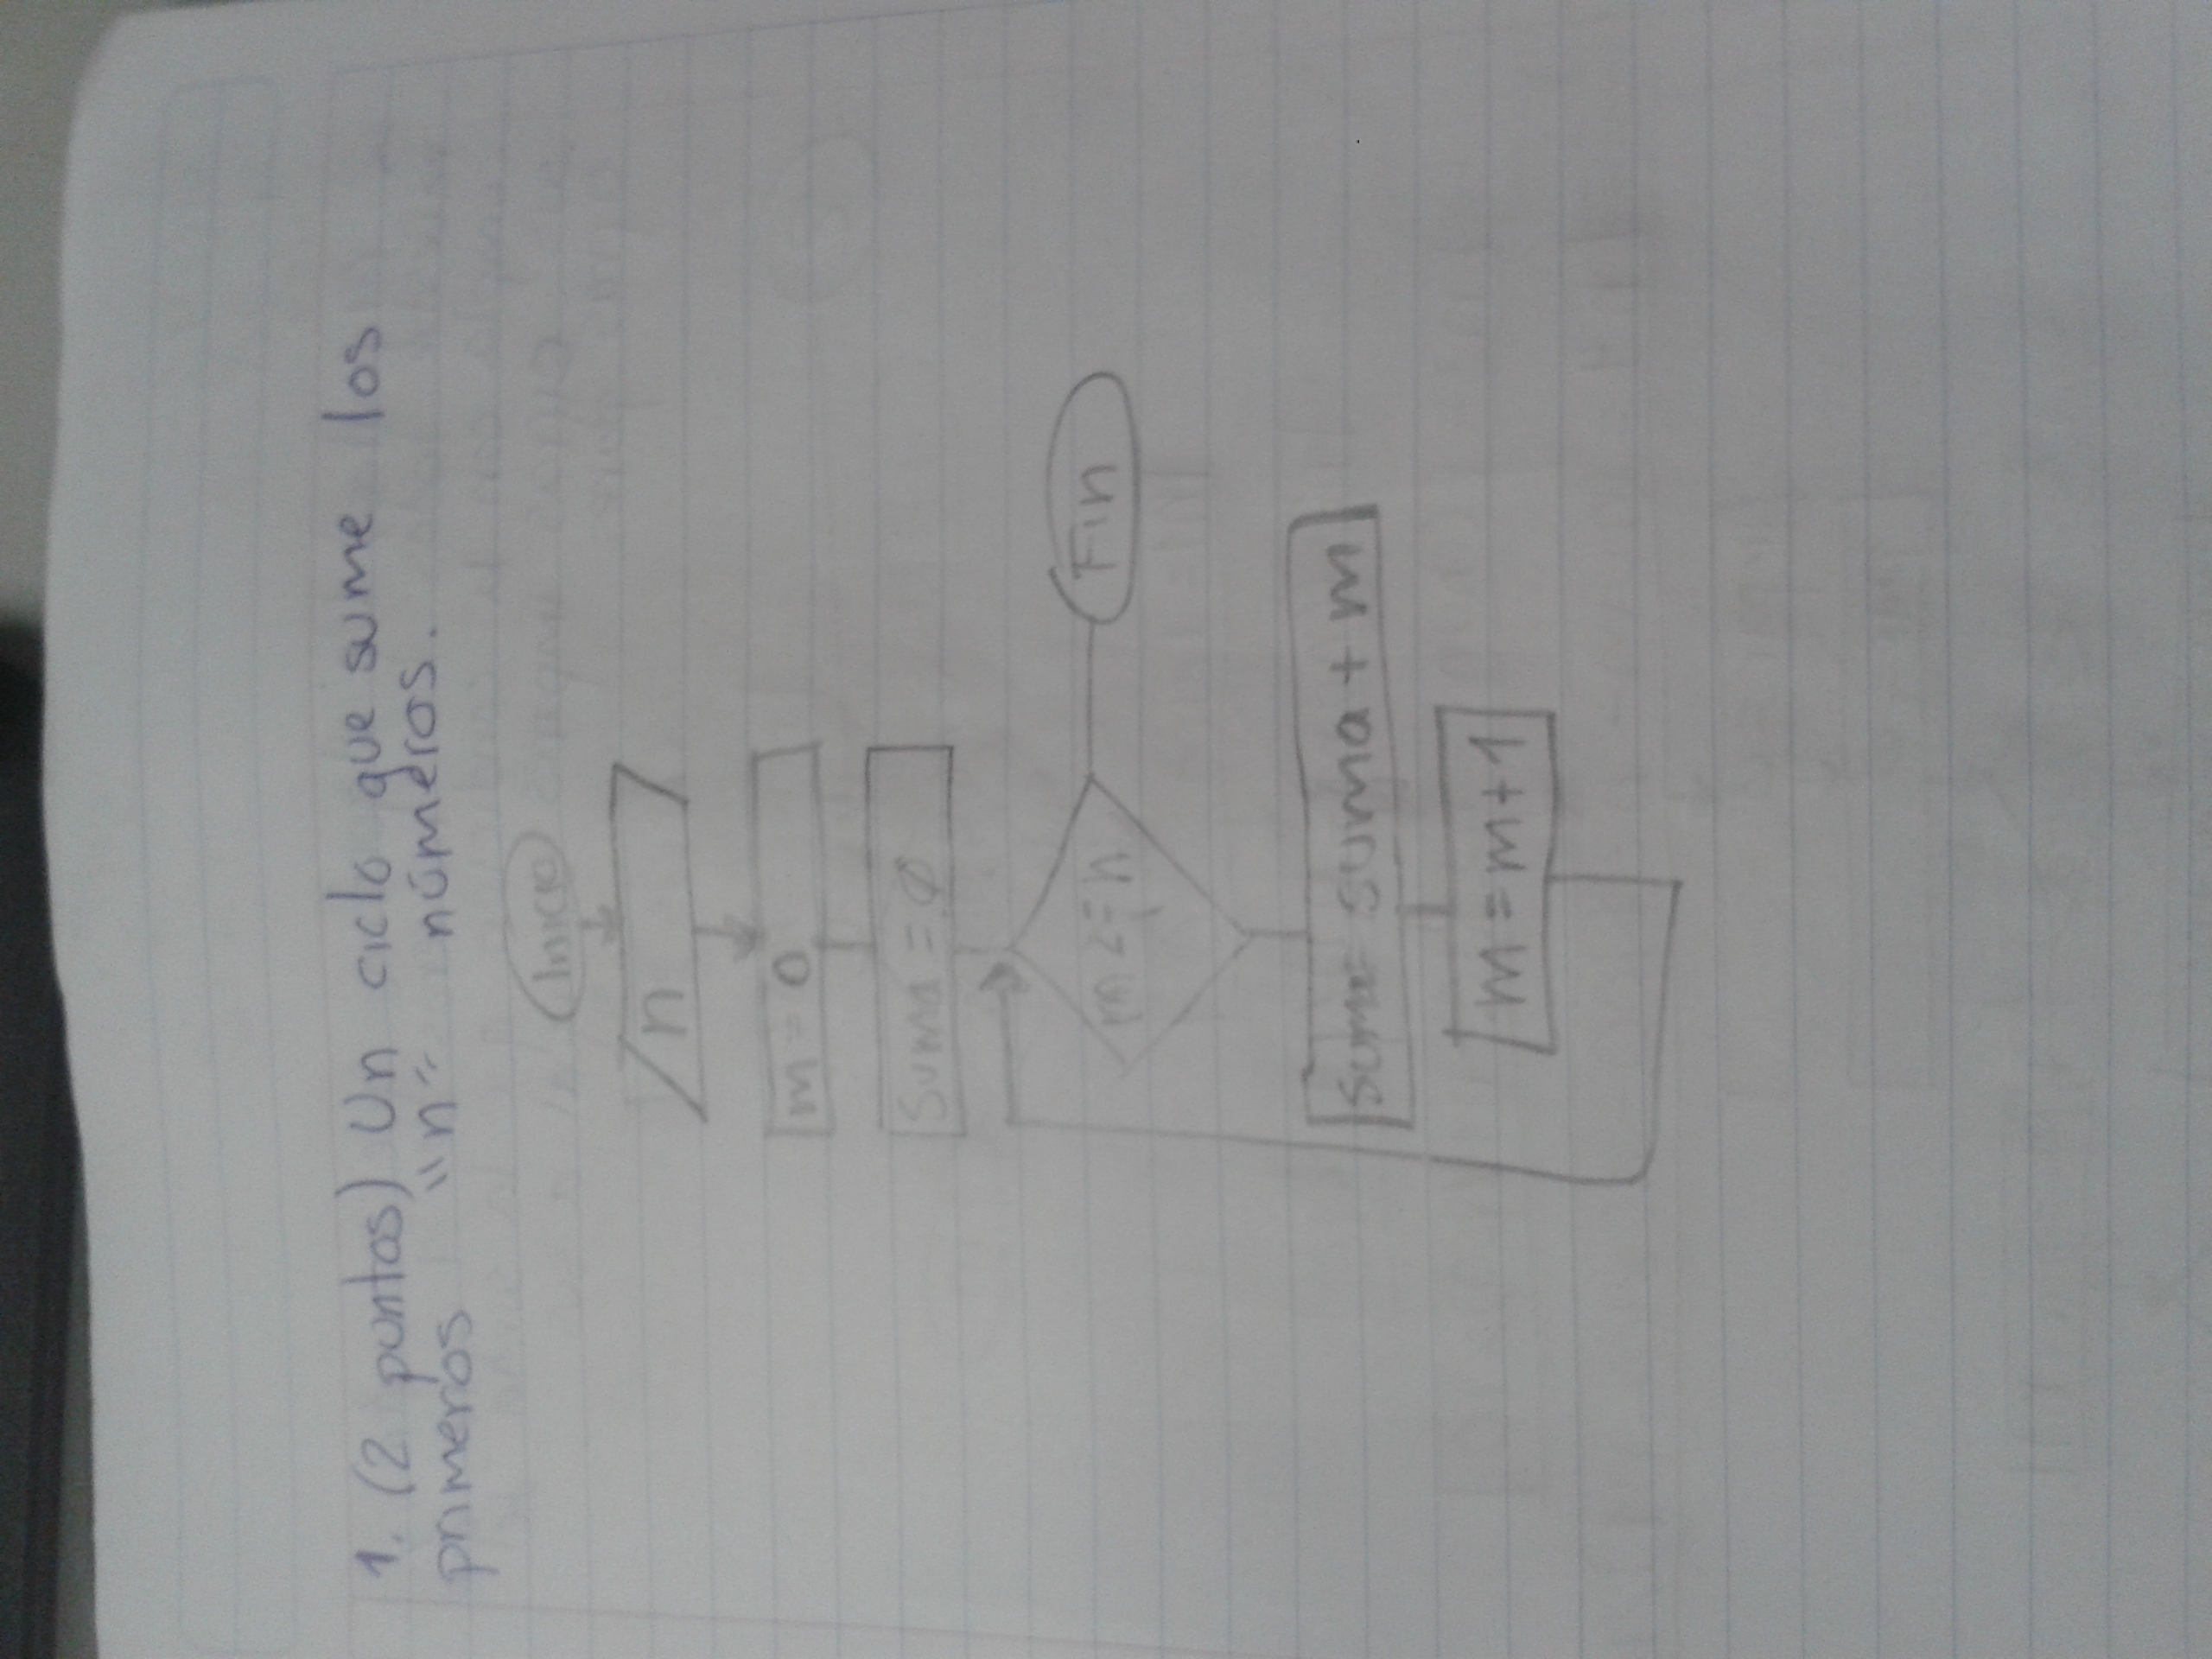 1. (2 puntos) Un ciclo que sume los
primeros "n" números.
Inicio
n
m = 0
Suma = 0
m <= n
Fin
Suma = suma + m
m = m + 1